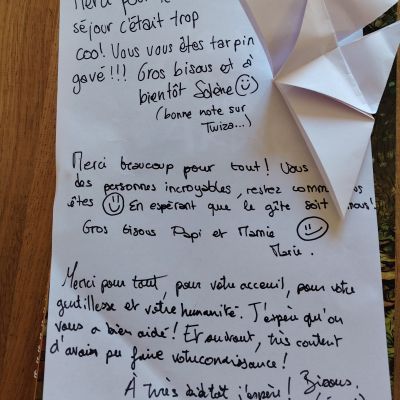 Merci pour
séjour c'était trop
coo! Vous vous êtes tarpin
gavé!!! Gros bisous et à
bientôt Solène
(bonne note sur
Twiza...)
Merci beaucoup pour tout! Vous
des personnes incroyables, restez comm
êtes En espérant que le gîte soit nous!
Gros bisous Papi et Mamie
Marie.
Merci pour tout, pour votre acceuil, pour votre
gentillesse et votre humanité. J'espère qu'on
vous a bien aidé! Et surtout, très content
d'avoir pu faire votre connaissance!
À très bientôt j'espère! Bisous.